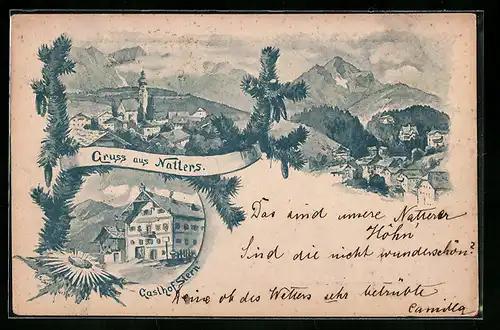 Gruss aus Natters.
Gasthof Stern
Das sind unsere Natterer
Höhn'
Sind die nicht wunderschön?
ob des Wetters sehr betrübte
Camilla